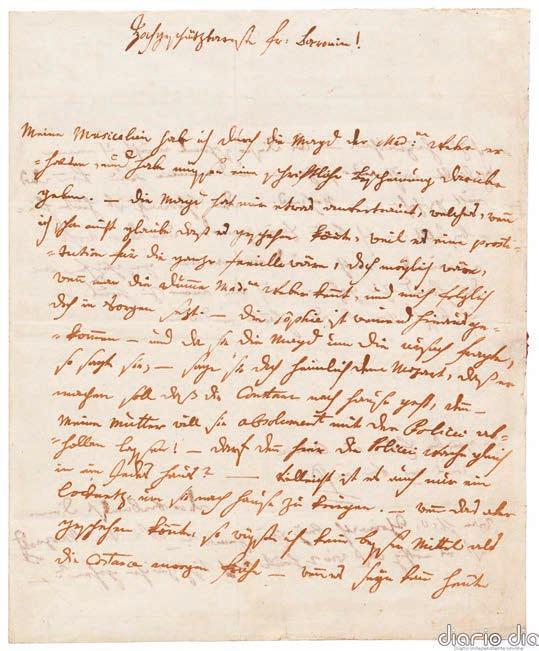 Hochgeschätzteste Fr: Baronin!
Meine Musicalien hab ich durch die Magd der Mad:me Weber er=
=halten, und hab müssen eine schriftliche Bescheinung darüber
geben. — die Magd hat mir etwas anvertrauet, welches, wenn
ich schon nicht glaube daß es geschehen könte, weil es eine prosti=
=tution für die ganze familie wäre, doch möglich wäre,
wenn man die dumme Mad:me Weber kent, und mich folglich
doch in Sorgen setzt. — die Sophie ist weinend hinaus ge=
=kommen — und da sie die Magd um die ursach fragte,
so sagte sie, — sage sie doch heimlich dem Mozart, daß er
machen soll daß die Constanz nach hause geht, den —
Meine Mutter will sie absolument mit der Policei ab=
=hollen lassen! — darf den hier die Policei wache gleich
in ein Jedes haus? — vielleicht ist es auch nur ein
locknetz um sie nach hause zu kriegen. — wenn das aber
geschehen könte, so wüste ich kein besseres Mittel als
die Constanze morgen frühe — wenns seyn kan heute
diario dia